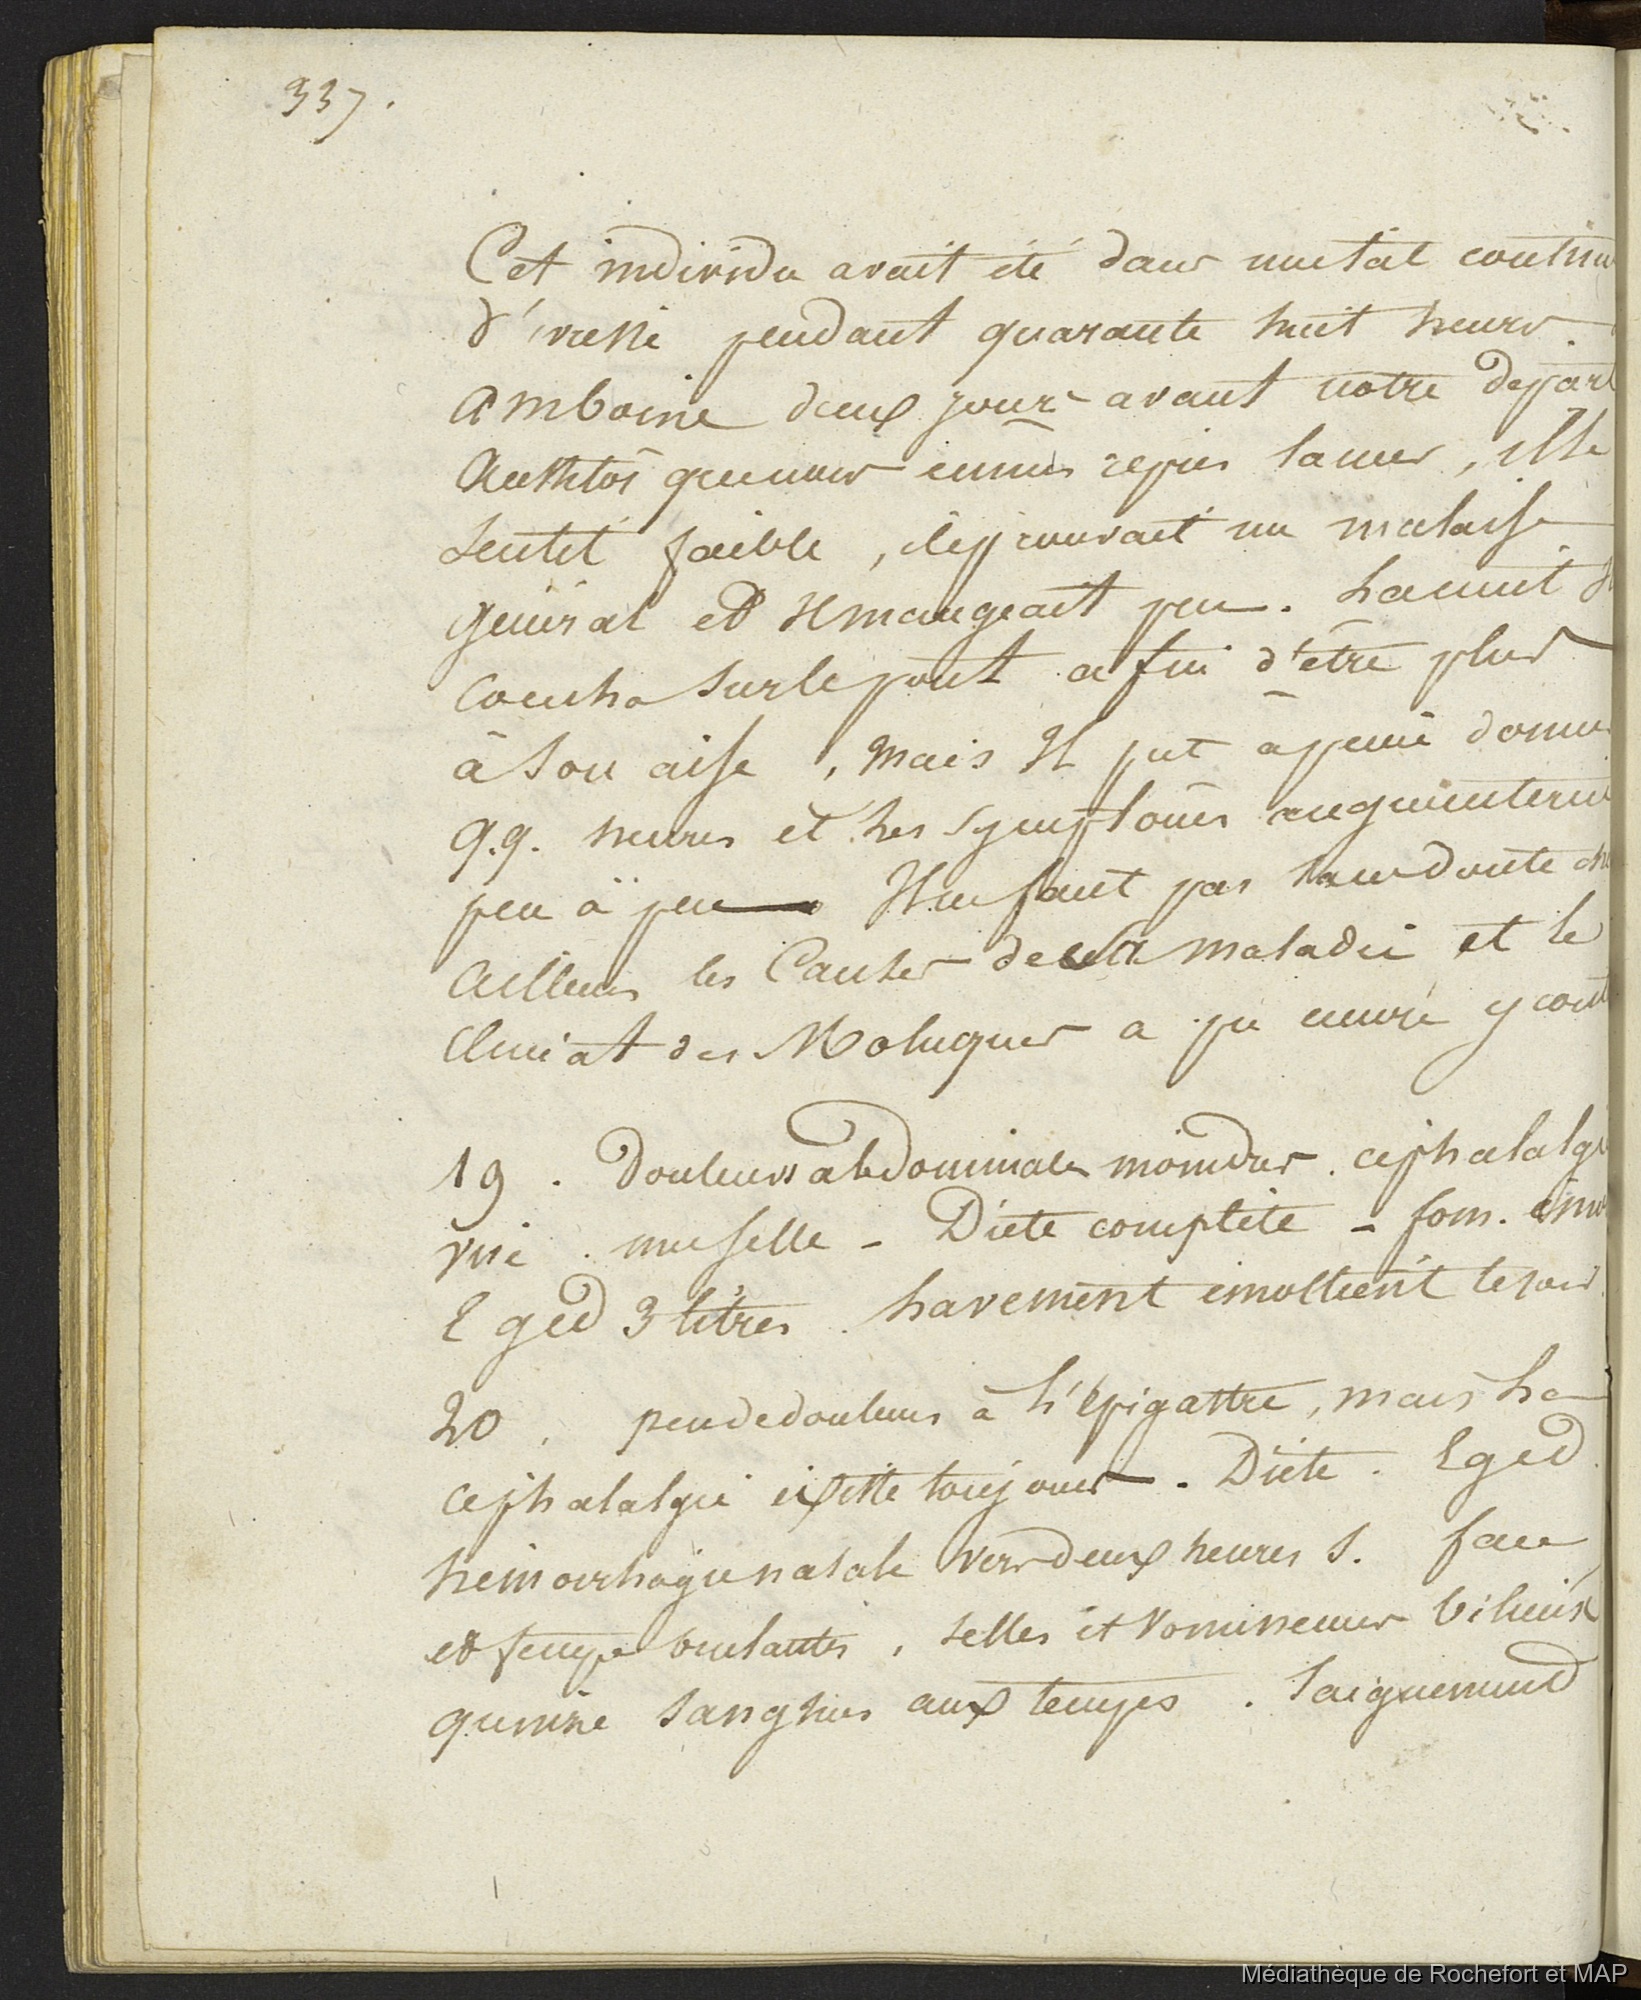 337.
Cet individu avait été dans un état continu
d'ivresse pendant quarante huit heures
Amboine deux jours avant notre départ
Aussitôt que nous eumes repris la mer, il se
sentit faible, il éprouvait un malaise
général et Il mangeait peu. La nuit Il
coucha sur le pont afin d'être plus
à son aise, mais Il put à peine dormir
q.q. heures et les symptômes augmentèrent
peu à peu Il ne faut pas sans doute
ailleurs les Causes de sa maladie et le
climat des Moluques a pu encore y cont
19. Douleurs abdominales moindres. céphalalgie
vive. une selle - Diète complète - fom. émo
Eged 3 litres. Lavement émollient le soir.
20. peu de douleurs à l'épigastre, mais la
céphalalgie existe toujours. Diète. Eged.
hémorrhagie nasale vers deux heures s. face
et temps brulantes, selles et vomissemens bilieux
quinze sangsues aux tempes.
Médiathèque de Rochefort et MAP